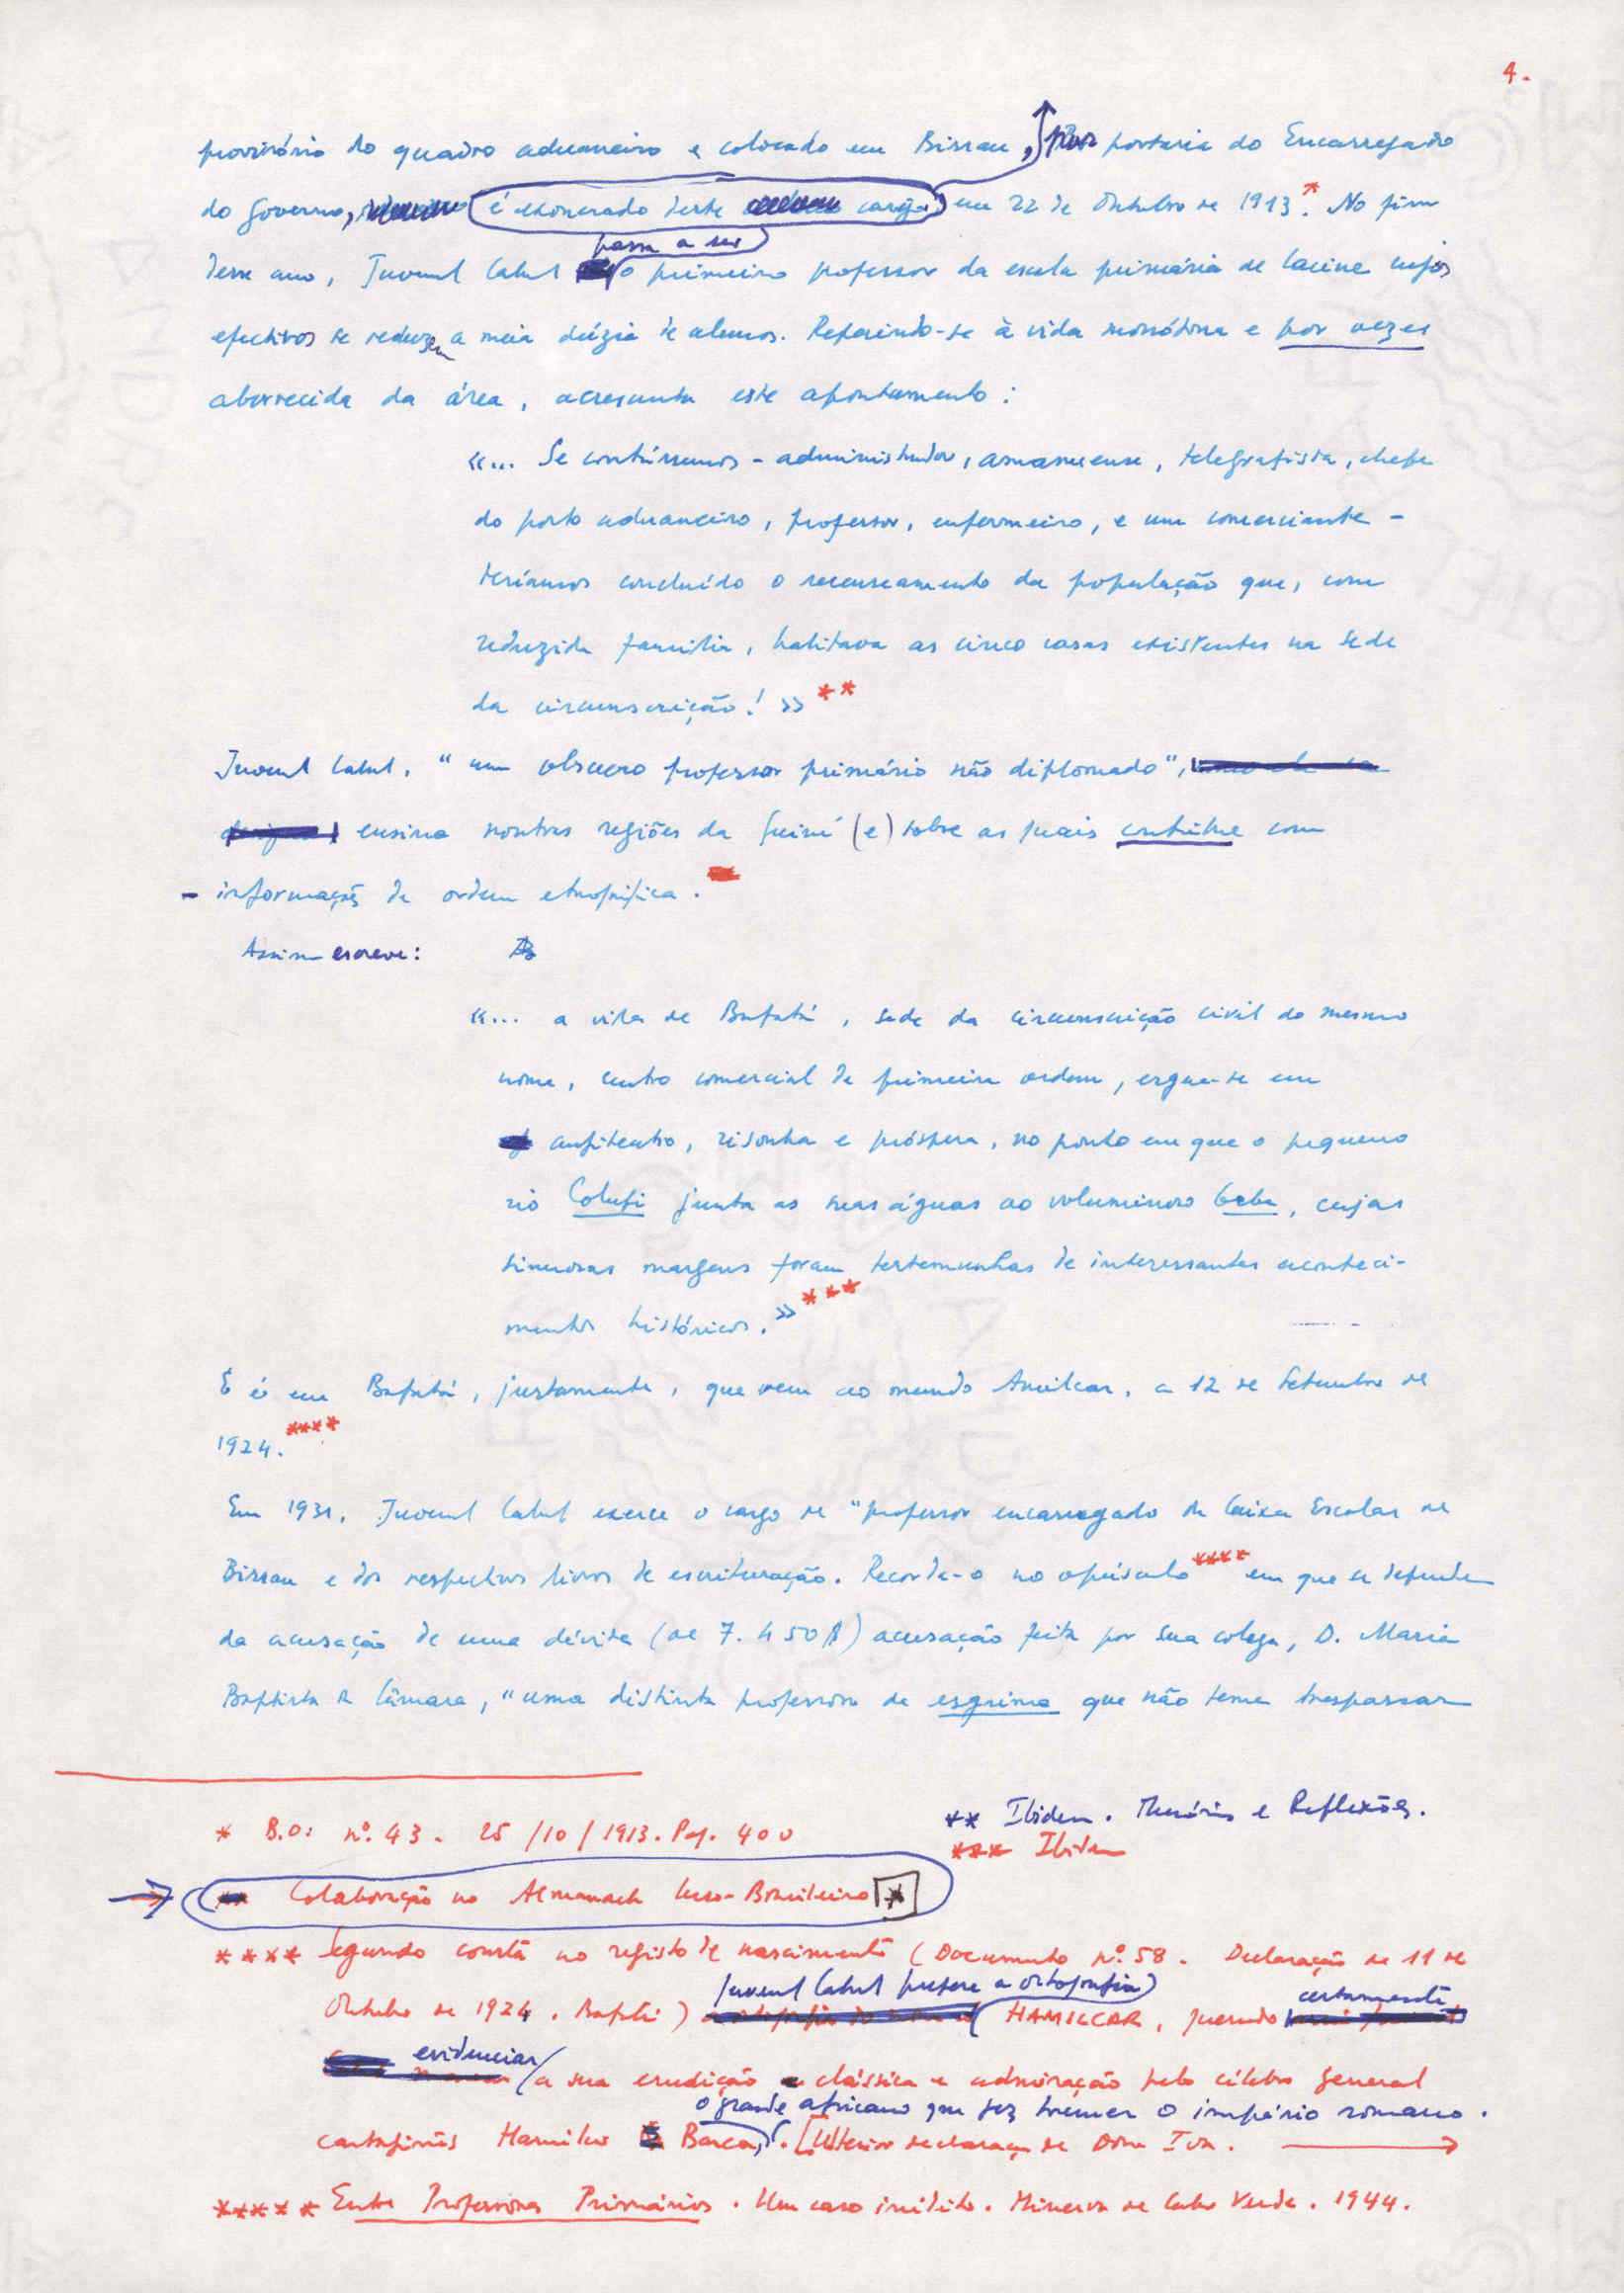 4.
provisório do quadro aduaneiro e colocado em Bissau, por portaria do Encarregado
do Governo, é exonerado deste cargo em 22 de Outubro de 1913.* No fim
passa a ser
desse ano, Juvenal Cabral o primeiro professor da escola primária de Cacine cujos
efectivos se reduzem a meia dúzia de alunos. Referindo-se à vida monótona e por vezes
aborrecida da área, acrescenta este apontamento:
«... Se contássemos - administrador, amanuense, telegrafista, chefe
do posto aduaneiro, professor, enfermeiro, e um comerciante -
teríamos concluído o recenseamento da população que, com
reduzida família, habitava as cinco casas existentes na sede
da circunscrição! » **
Juvenal Cabral, "um obscuro professor primário não diplomado",
ensina noutras regiões da Guiné (e) sobre as quais contribue com
- informações de ordem etnográfica.
Assim escreve:
«... a vila de Bafatá, sede da circunscrição civil do mesmo
nome, centro comercial de primeira ordem, ergue-se em
anfiteatro, risonha e próspera, no ponto em que o pequeno
rio Colufi junta as suas águas ao voluminoso Geba, cujas
sinuosas margens foram testemunhas de interessantes aconteci-
mentos históricos.» ***
E é em Bafatá, justamente, que vem ao mundo Amílcar, a 12 de Setembro de
1924. ****
Em 1931, Juvenal Cabral exerce o cargo de "professor encarregado da Caixa Escolar de
Bissau e dos respectivos livros de escrituração. Recorda-o no opúsculo **** em que se defende
da acusação de uma dívida (de 7.450$) acusação feita por sua colega, D. Maria
Baptista da Câmara, "uma distinta professora de esgrima que não teme trespassar
* B.O: nº. 43. 25/10/1913. Pag. 400
** Ibidem. Memórias e Reflexões.
*** Ibidem
** Colaboração no Almanach Luso-Brasileiro *
**** Segundo consta no registo de nascimento (Documento nº. 58. Declaração de 11 de
Juvenal Cabral prefere a ortografia certamente
Outubro de 1924. Bafatá) HAMILCAR, querendo
evidenciar
a sua erudição clássica e admiração pelo célebre general
o grande africano que fez tremer o império romano.
cartaginês Hamilcar Barca, . [Ulterior declaração de Dona Iva.
***** Entre Professores Primários. Um caso inédito. Minerva de Cabo Verde. 1944.